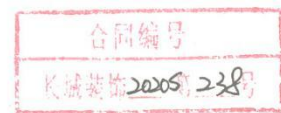 合同编号
长城装饰20205第238号